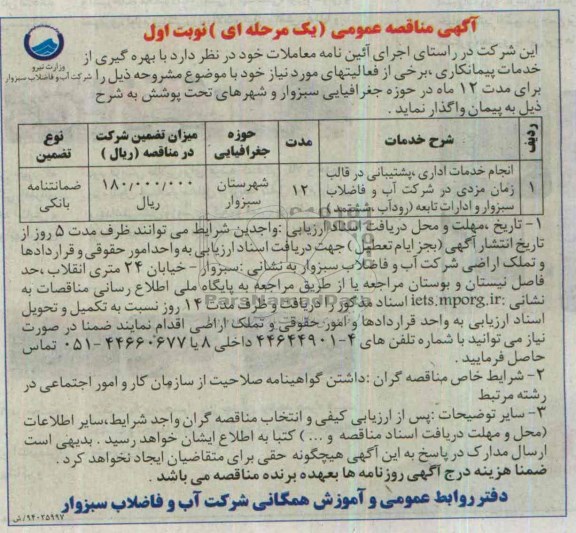 آگهی مناقصه عمومی (یک مرحله ای) نوبت اول
وزارت نیرو
شرکت آب و فاضلاب سبزوار
این شرکت در راستای اجرای آئین نامه معاملات خود در نظر دارد با بهره گیری از
خدمات پیمانکاری، برخی از فعالیتهای مورد نیاز خود با موضوع مشروحه ذیل را
برای مدت ۱۲ ماه در حوزه جغرافیایی سبزوار و شهرهای تحت پوشش به شرح
ذیل به پیمان واگذار نماید.
ردیف | شرح خدمات | مدت | حوزه جغرافیایی | میزان تضمین شرکت در مناقصه (ریال) | نوع تضمین
۱ | انجام خدمات اداری، پشتیبانی در قالب زمان مزدی در شرکت آب و فاضلاب سبزوار و ادارات تابعه (رودآب، ششتمد) | ۱۲ | شهرستان سبزوار | ۱۸۰/۰۰۰/۰۰۰ ریال | ضمانتنامه بانکی
۱- تاریخ، مهلت و محل دریافت اسناد ارزیابی: واجدین شرایط می توانند ظرف مدت ۵ روز از
تاریخ انتشار آگهی (بجز ایام تعطیل) جهت دریافت اسناد ارزیابی به واحد امور حقوقی و قراردادها
و تملک اراضی شرکت آب و فاضلاب سبزوار به نشانی: سبزوار - خیابان ۲۴ متری انقلاب، حد
فاصل نیستان و بوستان مراجعه یا از طریق مراجعه به پایگاه ملی اطلاع رسانی مناقصات به
نشانی: iets.mporg.ir اسناد مذکور را دریافت و ظرف مدت ۱۴ روز نسبت به تکمیل و تحویل
اسناد ارزیابی به واحد قراردادها و امور حقوقی و تملک اراضی اقدام نمایند ضمنا در صورت
نیاز می توانید با شماره تلفن های ۴-۴۴۶۴۴۹۰۱ داخلی ۸ یا ۴۴۶۶۰۶۷۷-۰۵۱ تماس
حاصل فرمایید.
۲- شرایط خاص مناقصه گران: داشتن گواهینامه صلاحیت از سازمان کار و امور اجتماعی در
رشته مرتبط
۳- سایر توضیحات: پس از ارزیابی کیفی و انتخاب مناقصه گران واجد شرایط، سایر اطلاعات
(محل و مهلت دریافت اسناد مناقصه و ...) کتبا به اطلاع ایشان خواهد رسید. بدیهی است
ارسال مدارک در پاسخ به این آگهی هیچگونه حقی برای متقاضیان ایجاد نخواهد کرد.
ضمنا هزینه درج آگهی روزنامه ها بعهده برنده مناقصه می باشد.
دفتر روابط عمومی و آموزش همگانی شرکت آب و فاضلاب سبزوار
۹۴۰۲۵۹۹۷/ش